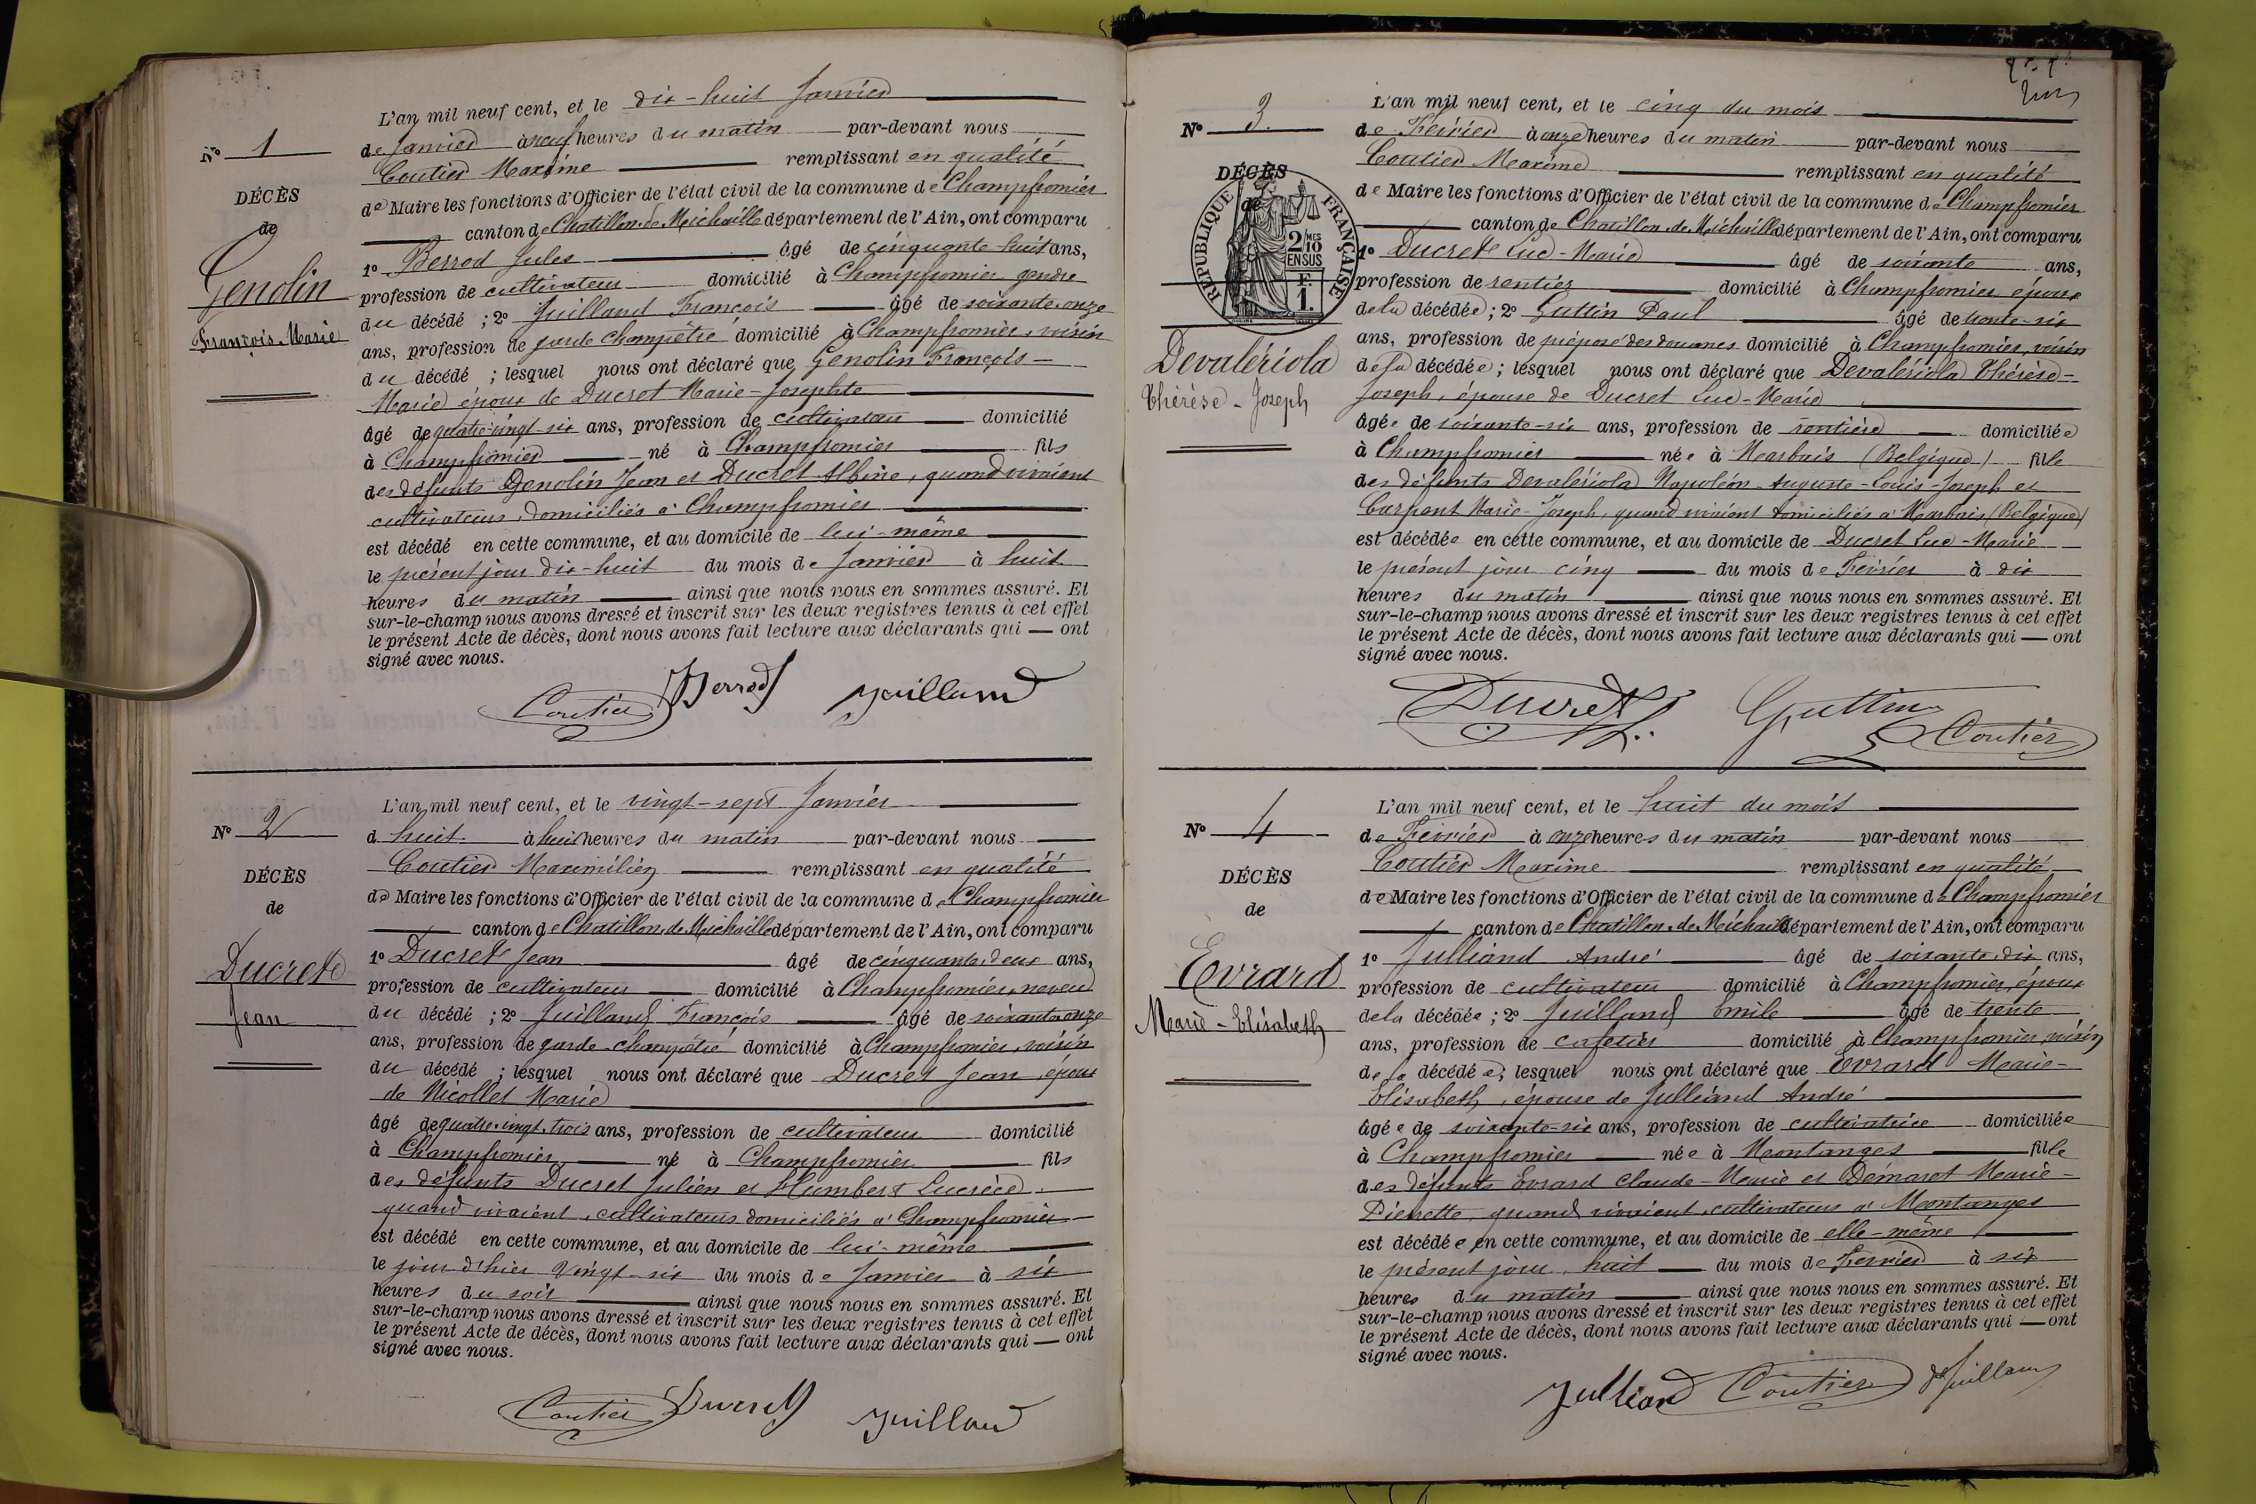 No 1
DÉCÈS
de
Genolin
François-Marie
L'an mil neuf cent, et le dix-huit Janvier
de Janvier à neuf heures du matin par-devant nous
Coutier Maxime remplissant en qualité
de Maire les fonctions d'Officier de l'état civil de la commune de Champfromier
canton de Chatillon-de-Michaille département de l'Ain, ont comparu
1o Berrod Jules âgé de cinquante-huit ans,
profession de cultivateur domicilié à Champfromier gendre
du décédé ; 2o Juilland François âgé de soixante-onze
ans, profession de garde champêtre domicilié à Champfromier, voisin
du décédé ; lesquel nous ont déclaré que Genolin François-
Marie époux de Ducret Marie-Josephte
âgé de quatre-vingt-six ans, profession de cultivateur domicilié
à Champfromier né à Champfromier fils
des défunts Genolin Jean et Ducret Albine, quand vivaient
cultivateurs, domiciliés à Champfromier
est décédé en cette commune, et au domicile de lui-même
le présent jour dix-huit du mois de Janvier à huit
heures du matin ainsi que nous nous en sommes assuré. Et
sur-le-champ nous avons dressé et inscrit sur les deux registres tenus à cet effet
le présent Acte de décès, dont nous avons fait lecture aux déclarants qui — ont
signé avec nous.
Coutier Berrod Juilland
No 2
DÉCÈS
de
Ducret
Jean
L'an mil neuf cent, et le vingt-sept Janvier
d huit à huit heures du matin par-devant nous
Coutier Maximilien remplissant en qualité
de Maire les fonctions d'Officier de l'état civil de la commune de Champfromier
canton de Chatillon-de-Michaille département de l'Ain, ont comparu
1o Ducret Jean âgé de cinquante-deux ans,
profession de cultivateur domicilié à Champfromier, neveu
du décédé ; 2o Juilland François âgé de soixante-onze
ans, profession de garde-champêtre domicilié à Champfromier, voisin
du décédé ; lesquel nous ont déclaré que Ducret Jean, époux
de Nicollet Marie
âgé de quatre-vingt-trois ans, profession de cultivateur domicilié
à Champfromier né à Champfromier fils
des défunts Ducret Julien et Humbert Lucrèce,
quand vivaient, cultivateurs domiciliés à Champfromier
est décédé en cette commune, et au domicile de lui-même
le jour d'hier vingt-six du mois de Janvier à six
heures du soir ainsi que nous nous en sommes assuré. Et
sur-le-champ nous avons dressé et inscrit sur les deux registres tenus à cet effet
le présent Acte de décès, dont nous avons fait lecture aux déclarants qui — ont
signé avec nous.
Coutier Ducret Juilland
No 3.
DÉCÈS
de
RÉPUBLIQUE FRANÇAISE
2/10 MES
EN SUS
F.
1.
Devalériola
Thérèse-Joseph
L'an mil neuf cent, et le cinq du mois
de Février à onze heures du matin par-devant nous
Coutier Maxime remplissant en qualité
de Maire les fonctions d'Officier de l'état civil de la commune de Champfromier
canton de Chatillon-de-Michaille département de l'Ain, ont comparu
1o Ducret Luc-Marie âgé de soixante ans,
profession de rentier domicilié à Champfromier, époux
de la décédée ; 2o Guttin Paul âgé de trente-six
ans, profession de préposé des douanes domicilié à Champfromier, voisin
de la décédée ; lesquel nous ont déclaré que Devalériola Thérèse-
Joseph, épouse de Ducret Luc-Marie
âgée de soixante-six ans, profession de rentière domiciliée
à Champfromier née à Marbais (Belgique) fille
des défunts Devalériola Napoléon-Auguste-Louis-Joseph et
Carpent Marie-Joseph, quand vivaient domiciliés à Marbais (Belgique)
est décédée en cette commune, et au domicile de Ducret Luc-Marie
le présent jour cinq du mois de Février à dix
heures du matin ainsi que nous nous en sommes assuré. Et
sur-le-champ nous avons dressé et inscrit sur les deux registres tenus à cet effet
le présent Acte de décès, dont nous avons fait lecture aux déclarants qui — ont
signé avec nous.
Ducret L. Guttin Coutier
No 4
DÉCÈS
de
Evrard
Marie-Elisabeth
L'an mil neuf cent, et le huit du mois
de Février à onze heures du matin par-devant nous
Coutier Maxime remplissant en qualité
de Maire les fonctions d'Officier de l'état civil de la commune de Champfromier
canton de Chatillon-de-Michaille département de l'Ain, ont comparu
1o Julliand André âgé de soixante-dix ans,
profession de cultivateur domicilié à Champfromier, époux
de la décédée ; 2o Juilland Emile âgé de trente
ans, profession de cafetier domicilié à Champfromier voisin
de la décédée ; lesquel nous ont déclaré que Evrard Marie-
Elisabeth, épouse de Julliand André
âgée de soixante-six ans, profession de cultivatrice domiciliée
à Champfromier née à Montanges fille
des défunts Evrard Claude-Marie et Démarot Marie-
Pierrette quand vivaient cultivateurs à Montanges
est décédée en cette commune, et au domicile de elle-même
le présent jour, huit du mois de Février à six
heures du matin ainsi que nous nous en sommes assuré. Et
sur-le-champ nous avons dressé et inscrit sur les deux registres tenus à cet effet
le présent Acte de décès, dont nous avons fait lecture aux déclarants qui — ont
signé avec nous.
Julliand Coutier Juilland